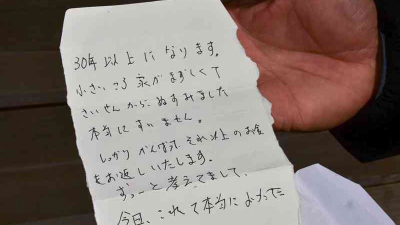 30年以上になります。
小さいころ家がまずしくて
さいせんからぬすみました
本当にすいません。
しっかりがんばって、それ以上のお金
をお返しいたします。
ずっーと考えてまして、
今日、これで本当によかった